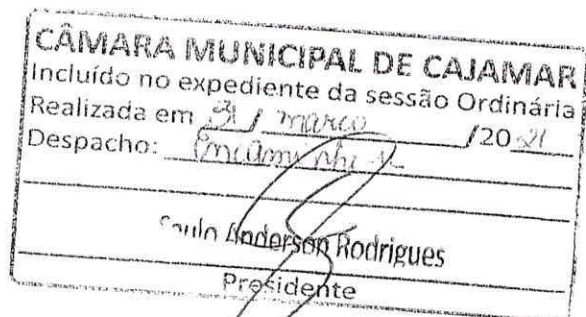 CÂMARA MUNICIPAL DE CAJAMAR
Incluído no expediente da sessão Ordinária
Realizada em 31 / março /20 21
Despacho: Encaminhe-se
Saulo Anderson Rodrigues
Presidente